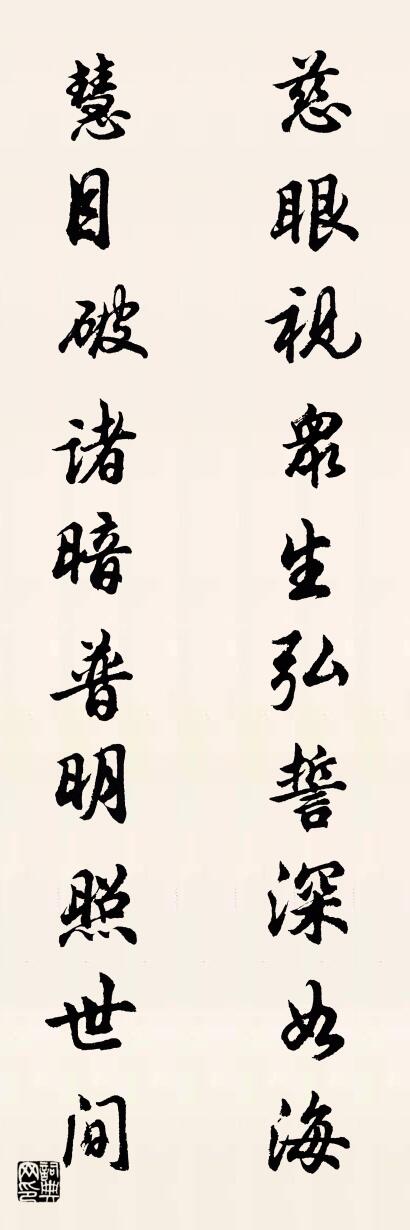 慈眼視眾生弘誓深如海
慧目破诸暗普明照世间
詞典網印